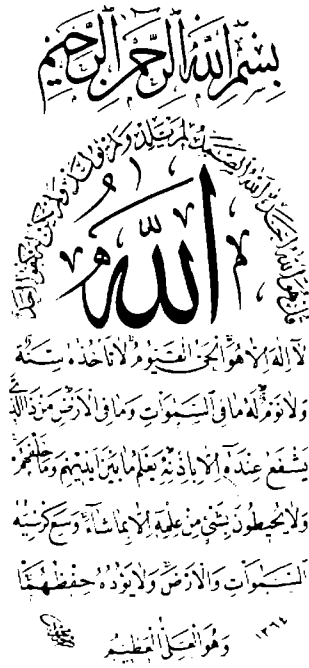 بِسْمِ اللهِ الرَّحْمٰنِ الرَّحِيمِ
قُلْ هُوَ اللهُ اَحَدٌ اَللهُ الصَّمَدُ لَمْ يَلِدْ وَلَمْ يُولَدْ وَلَمْ يَكُنْ لَهُ كُفُوًا اَحَدٌ
الله
لَا اِلٰهَ اِلَّا هُوَ الْحَىُّ الْقَيُّومُ لَا تَأْخُذُهُ سِنَةٌ
وَلَا نَوْمٌ لَهُ مَا فِى السَّمٰوَاتِ وَمَا فِى الْاَرْضِ مَنْ ذَا الَّذِى
يَشْفَعُ عِنْدَهُ اِلَّا بِاِذْنِهِ يَعْلَمُ مَا بَيْنَ اَيْدِيهِمْ وَمَا خَلْفَهُمْ
وَلَا يُحِيطُونَ بِشَىْءٍ مِنْ عِلْمِهِ اِلَّا بِمَا شَاءَ وَسِعَ كُرْسِيُّهُ
السَّمٰوَاتِ وَالْاَرْضَ وَلَا يَؤُدُهُ حِفْظُهُمَا
وَهُوَ الْعَلِىُّ الْعَظِيمُ
١٣٦٤